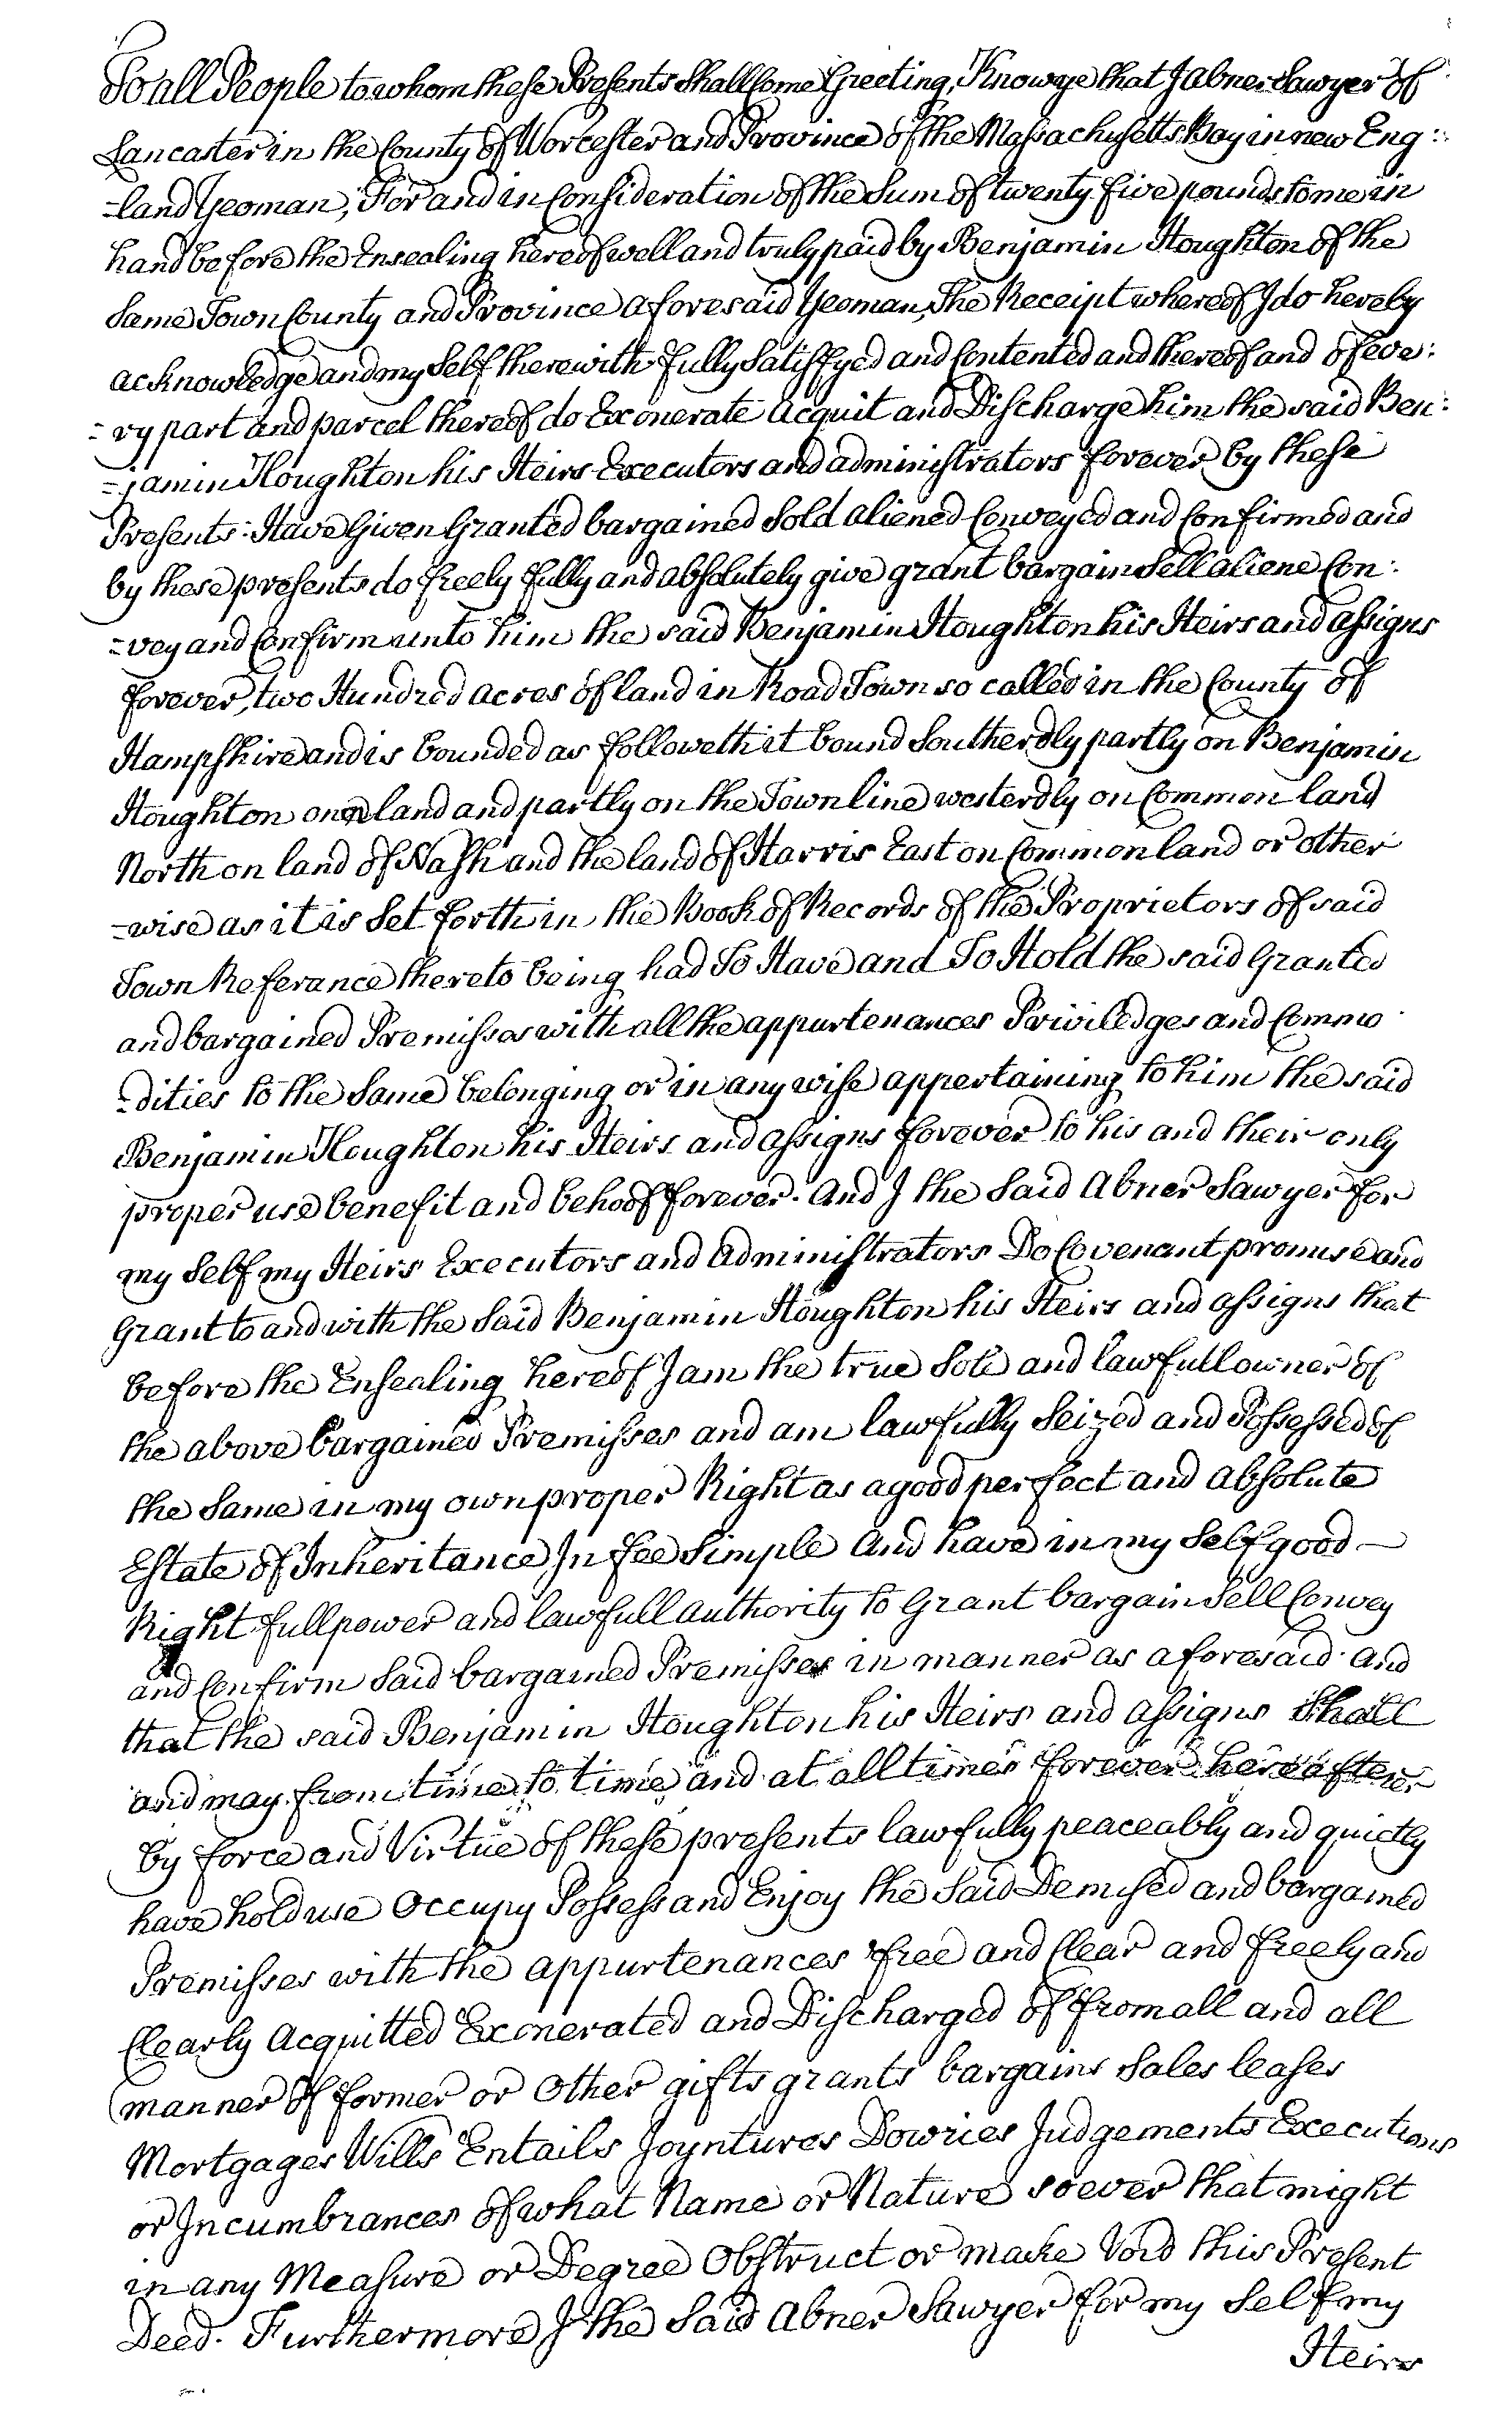 To all People to whom these Presents Shall Come Greeting, Know ye that I Abner Sawyer of
Lancaster in the County of Worcester and Province of the Massachusetts Bay in new Eng:
=land Yeoman, For and in Consideration of the Sum of twenty five pounds to me in
hand before the Ensealing hereof well and truly paid by Benjamin Houghton of the
Same Town County and Province aforesaid Yeoman, The Receipt whereof I do hereby
acknowledge and my Self therewith fully Satisfyed and Contented and thereof and of eve:
=ry part and parcel thereof do Exonerate Acquit and Discharge him the said Ben:
=jamin Houghton his Heirs Executors and administrators forever by these
Presents: Have Given Granted bargained Sold aliened Conveyed and Confirmed and
by these presents do freely fully and absolutely give grant bargain Sell aliene Con:
=vey and Confirm unto him the said Benjamin Houghton his Heirs and assigns
forever, two Hundred acres of land in Road Town so called in the County of
Hampshire and is bounded as followeth it bound Southerdly partly on Benjamin
Houghton own land and partly on the Town line westerdly on Common land
North on land of Nash and the land of Harris East on Common land or other
=wise as it is Set forth in the Book of Records of the Proprietors of said
Town Referance thereto being had To Have and To Hold the said Granted
and bargained Premisses with all the appurtenances Priviledges and Commo
=dities to the Same belonging or in any wise appertaining to him the said
Benjamin Houghton his Heirs and assigns forever to his and their only
proper use benefit and behoof forever. And I the Said Abner Sawyer for
my Self my Heirs Executors and administrators Do Covenant promise and
Grant to and with the Said Benjamin Houghton his Heirs and assigns that
before the Ensealing hereof I am the true Sole and lawfull owner of
the above bargained Premisses and am lawfully Seized and Possessed of
the Same in my own proper Right as a good perfect and absolute
Estate of Inheritance In fee Simple And have in my Self good
Right full power and lawfull authority to Grant bargain Sell Convey
and Confirm Said bargained Premisses in manner as aforesaid. and
that the said Benjamin Houghton his Heirs and assigns Shall
and may from time to time and at all times forever hereafter
by force and Virtue of these presents lawfully peaceably and quietly
have hold use Occupy Possess and Enjoy the Said Demised and bargained
Premisses with the appurtenances free and Clear and freely and
Clearly Acquitted Exonerated and Discharged of from all and all
manner of former or Other gifts grants bargains Sales leases
Mortgages Wills Entails Joyntures Dowries Judgements Executions
or Incumbrances of what Name or Nature soever that might
in any Measure or Degree Obstruct or make Void this Present
Deed. Furthermore I the Said Abner Sawyer for my Self my
Heirs